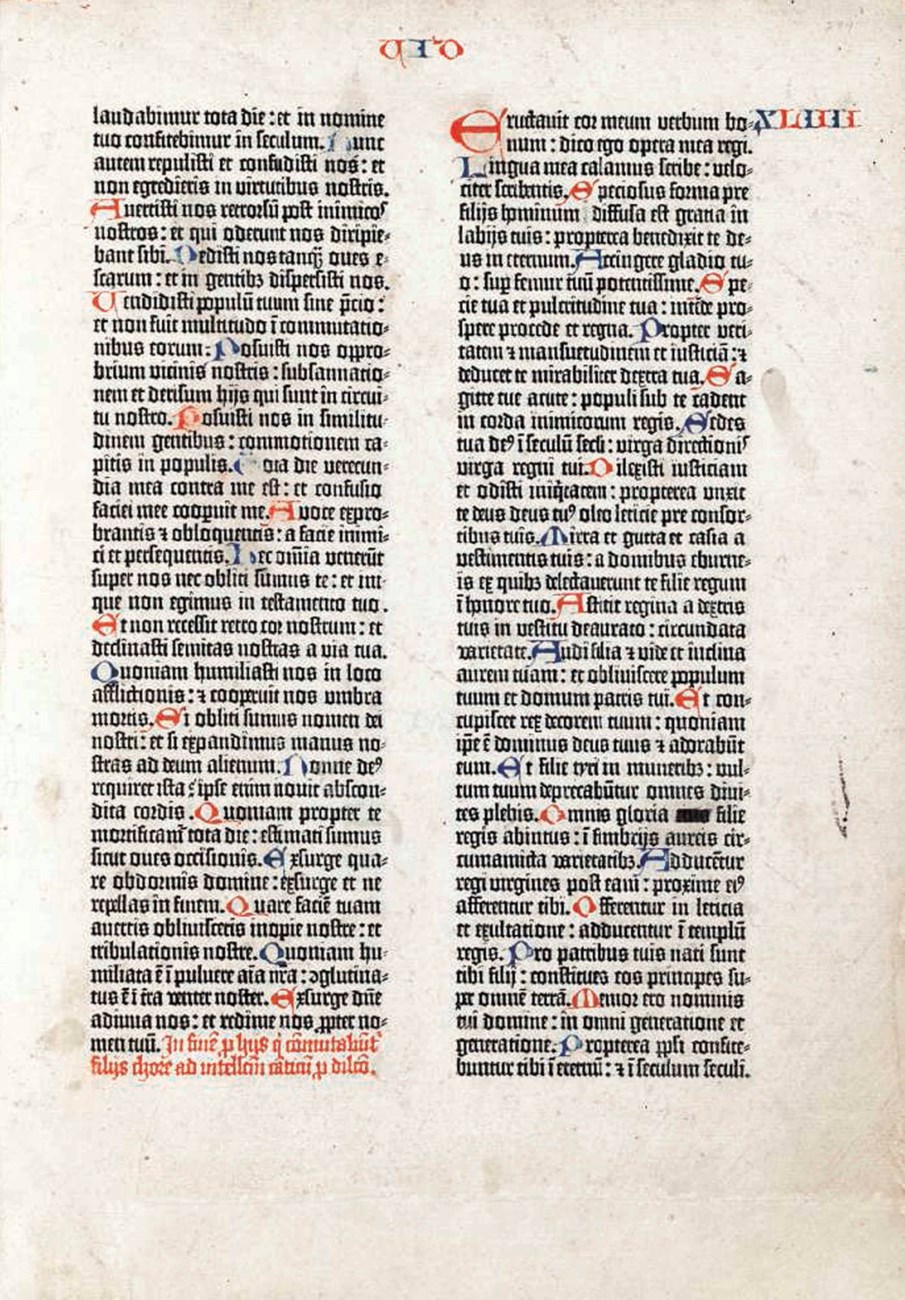 laudabimur tota die : et in nomine
tuo confitebimur in seculum. Nunc
autem repulisti et confudisti nos : et
non egredieris in virtutibus nostris.
Avertisti nos retrorsū post inimicos
nostros : et qui oderunt nos diripie-
bant sibi. Dedisti nos tanq̄ oues e-
scarum : et in gentibꝫ dispersisti nos.
Vendidisti populū tuum sine p̄cio :
et non fuit multitudo ī commutatio-
nibus eorum : Posuisti nos oppro-
brium vicinis nostris : subsannatio-
nem et derisum hijs qui sunt in circui-
tu nostro. Posuisti nos in similitu-
dinem gentibus : commotionem ca-
pitis in populis. Tota die verecun-
dia mea contra me est : et confusio
faciei mee cooperuit me. A voce expro-
brantis ⁊ obloquentis : a facie inimi-
ci et persequentis. Hec om̄ia venerūt
super nos nec obliti sumus te : et ini-
que non egimus in testamento tuo.
Et non recessit retro cor nostrum : et
declinasti semitas nostras a via tua.
Quoniam humiliasti nos in loco
afflictionis : ⁊ cooperuit nos umbra
mortis. Si obliti sumus nomen dei
nostri : et si expandimus manus no-
stras ad deum alienum. Nonne deꝰ
requiret ista : ipse enim novit abscon-
dita cordis. Quoniam propter te
mortificam̄ tota die : estimati sumus
sicut oues occisionis. Exsurge qua-
re obdormis domine : exsurge et ne
repellas in finem. Quare faciē tuam
avertis obliuisceris inopie nostre : et
tribulationis nostre. Quoniam hu-
miliata ē ī puluere aīa nr̄a : ꝯglutina-
tus ē ī t̄ra venter noster. Exsurge dn̄e
adiuua nos : et redime nos ꝓpter no-
men tuū. In finē ꝓ hijs q̄ cōmutabūt᷑
filijs chore ad intellectū cāticū ꝓ dilcō.
VID
XLIIII
Eructauit cor meum verbum bo-
num : dico ego opera mea regi.
Lingua mea calamus scribe : velo-
citer scribentis. Speciosus forma pre
filijs hominum diffusa est gratia in
labijs tuis : propterea benedixit te de-
us in eternum. Accingere gladio tu-
o : sup̄ femur tuū potentissime. Spe-
cie tua et pulcritudine tua : intēde pro-
spere procede et regna. Propter veri-
tatem ⁊ mansuetudinem et iusticiā : ⁊
deducet te mirabiliter dextera tua. Sa-
gitte tue acute : populi sub te cadent
in corda inimicorum regis. Sedes
tua deꝰ ī seculū secli : virga directionis
virga regni tui. Dilexisti iusticiam
et odisti iniq̄tatem : propterea unxit
te deus deus tuꝰ oleo leticie pre consor-
tibus tuis. Mirra et gutta et casia a
vestimentis tuis : a domibus eburne-
is ex quibꝫ delectauerunt te filie regum
ī honore tuo. Astitit regina a dextris
tuis in vestitu deaurato : circundata
varietate. Audi filia ⁊ vide et inclina
aurem tuam : et obliuiscere populum
tuum et domum patris tui. Et con-
cupiscet rex decorem tuum : quoniam
ip̄e ē dominus deus tuus ⁊ adorabūt
eum. Et filie tyri in muneribꝫ : vul-
tum tuum deprecabūtur omnes diui-
tes plebis. Omnis gloria filie
regis abintus : ī fimbrijs aureis cir-
cumamicta varietatibꝫ. Adducētur
regi virgines post eam : proxime eiꝰ
afferentur tibi. Offerentur in leticia
et exultatione : adducentur ī templū
regis. Pro patribus tuis nati sunt
tibi filij : constitues eos principes su-
per omnē terrā. Memor ero nominis
tui domine : in omni generatione et
generatione. Propterea ppl̄i confite-
buntur tibi ī eternū : ⁊ ī seculum seculi.